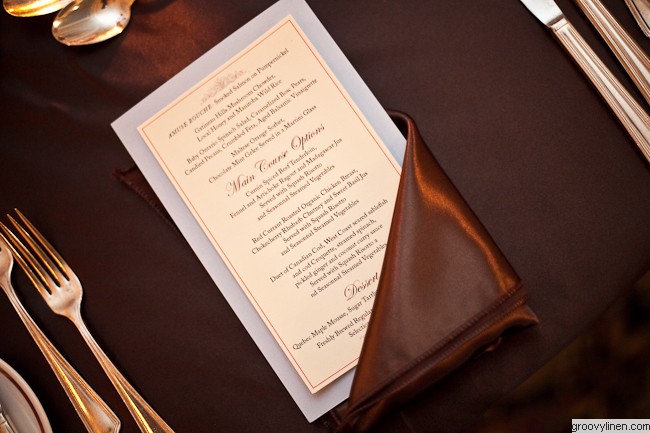 AMUSE BOUCHE: Smoked Salmon on Pumpernickel
Gatineau Hills Mushroom Chowder,
Local Honey and Manitoba Wild Rice
Baby Ontario Spinach Salad, Caramelized Bosc Pears,
Candied Pecans, Crumbled Feta, Aged Balsamic Vinaigrette
Maltese Orange Sorbet,
Chocolate Mint Gelée Served in a Martini Glass
Main Course Options
Cumin Spiced Beef Tenderloin,
Fennel and Artichoke Ragout and Madagascar Jus
Served with Squash Risotto
and Seasonal Steamed Vegetables
Red Currant Roasted Organic Chicken Breast,
Chokecherry Rhubarb Chutney and Sweet Basil Jus
Served with Squash Risotto
and Seasonal Steamed Vegetables
Duet of Canadian Cod, West Coast seared sablefish
and cod Croquette, steamed spinach,
pickled ginger and coconut curry sauce
Served with Squash Risotto
nd Seasonal Steamed Vegetables
Dessert
Quebec Maple Mousse, Sugar Tartl
Freshly Brewed Regular
groovylinen.com